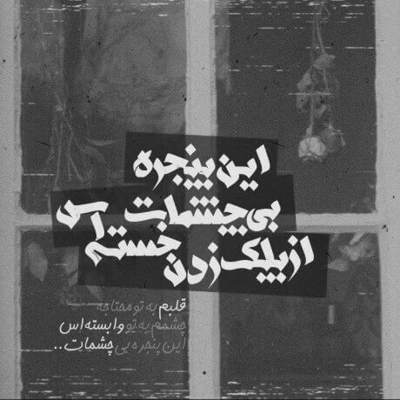 این پنجره
بی‌چشمات
خسته اس
از پلک زدن
قلبم به تو محتاجه
چشمم به تو وابسته اس
این پنجره بی چشمات..